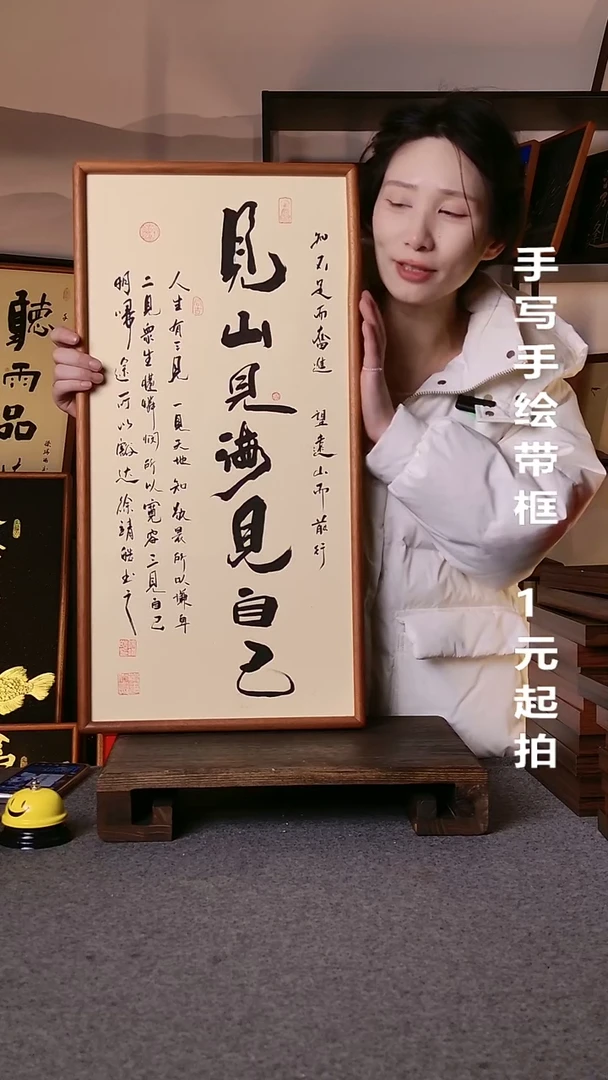 知不足而奋進 望遠山而前行
見山見海見自己
人生有三見 一見天地知敬畏所以谦卑
二見眾生懂憐悯所以寬容三見自己
明歸途所以豁达 徐靖皓书之
聽雨品
手写手绘带框 1元起拍